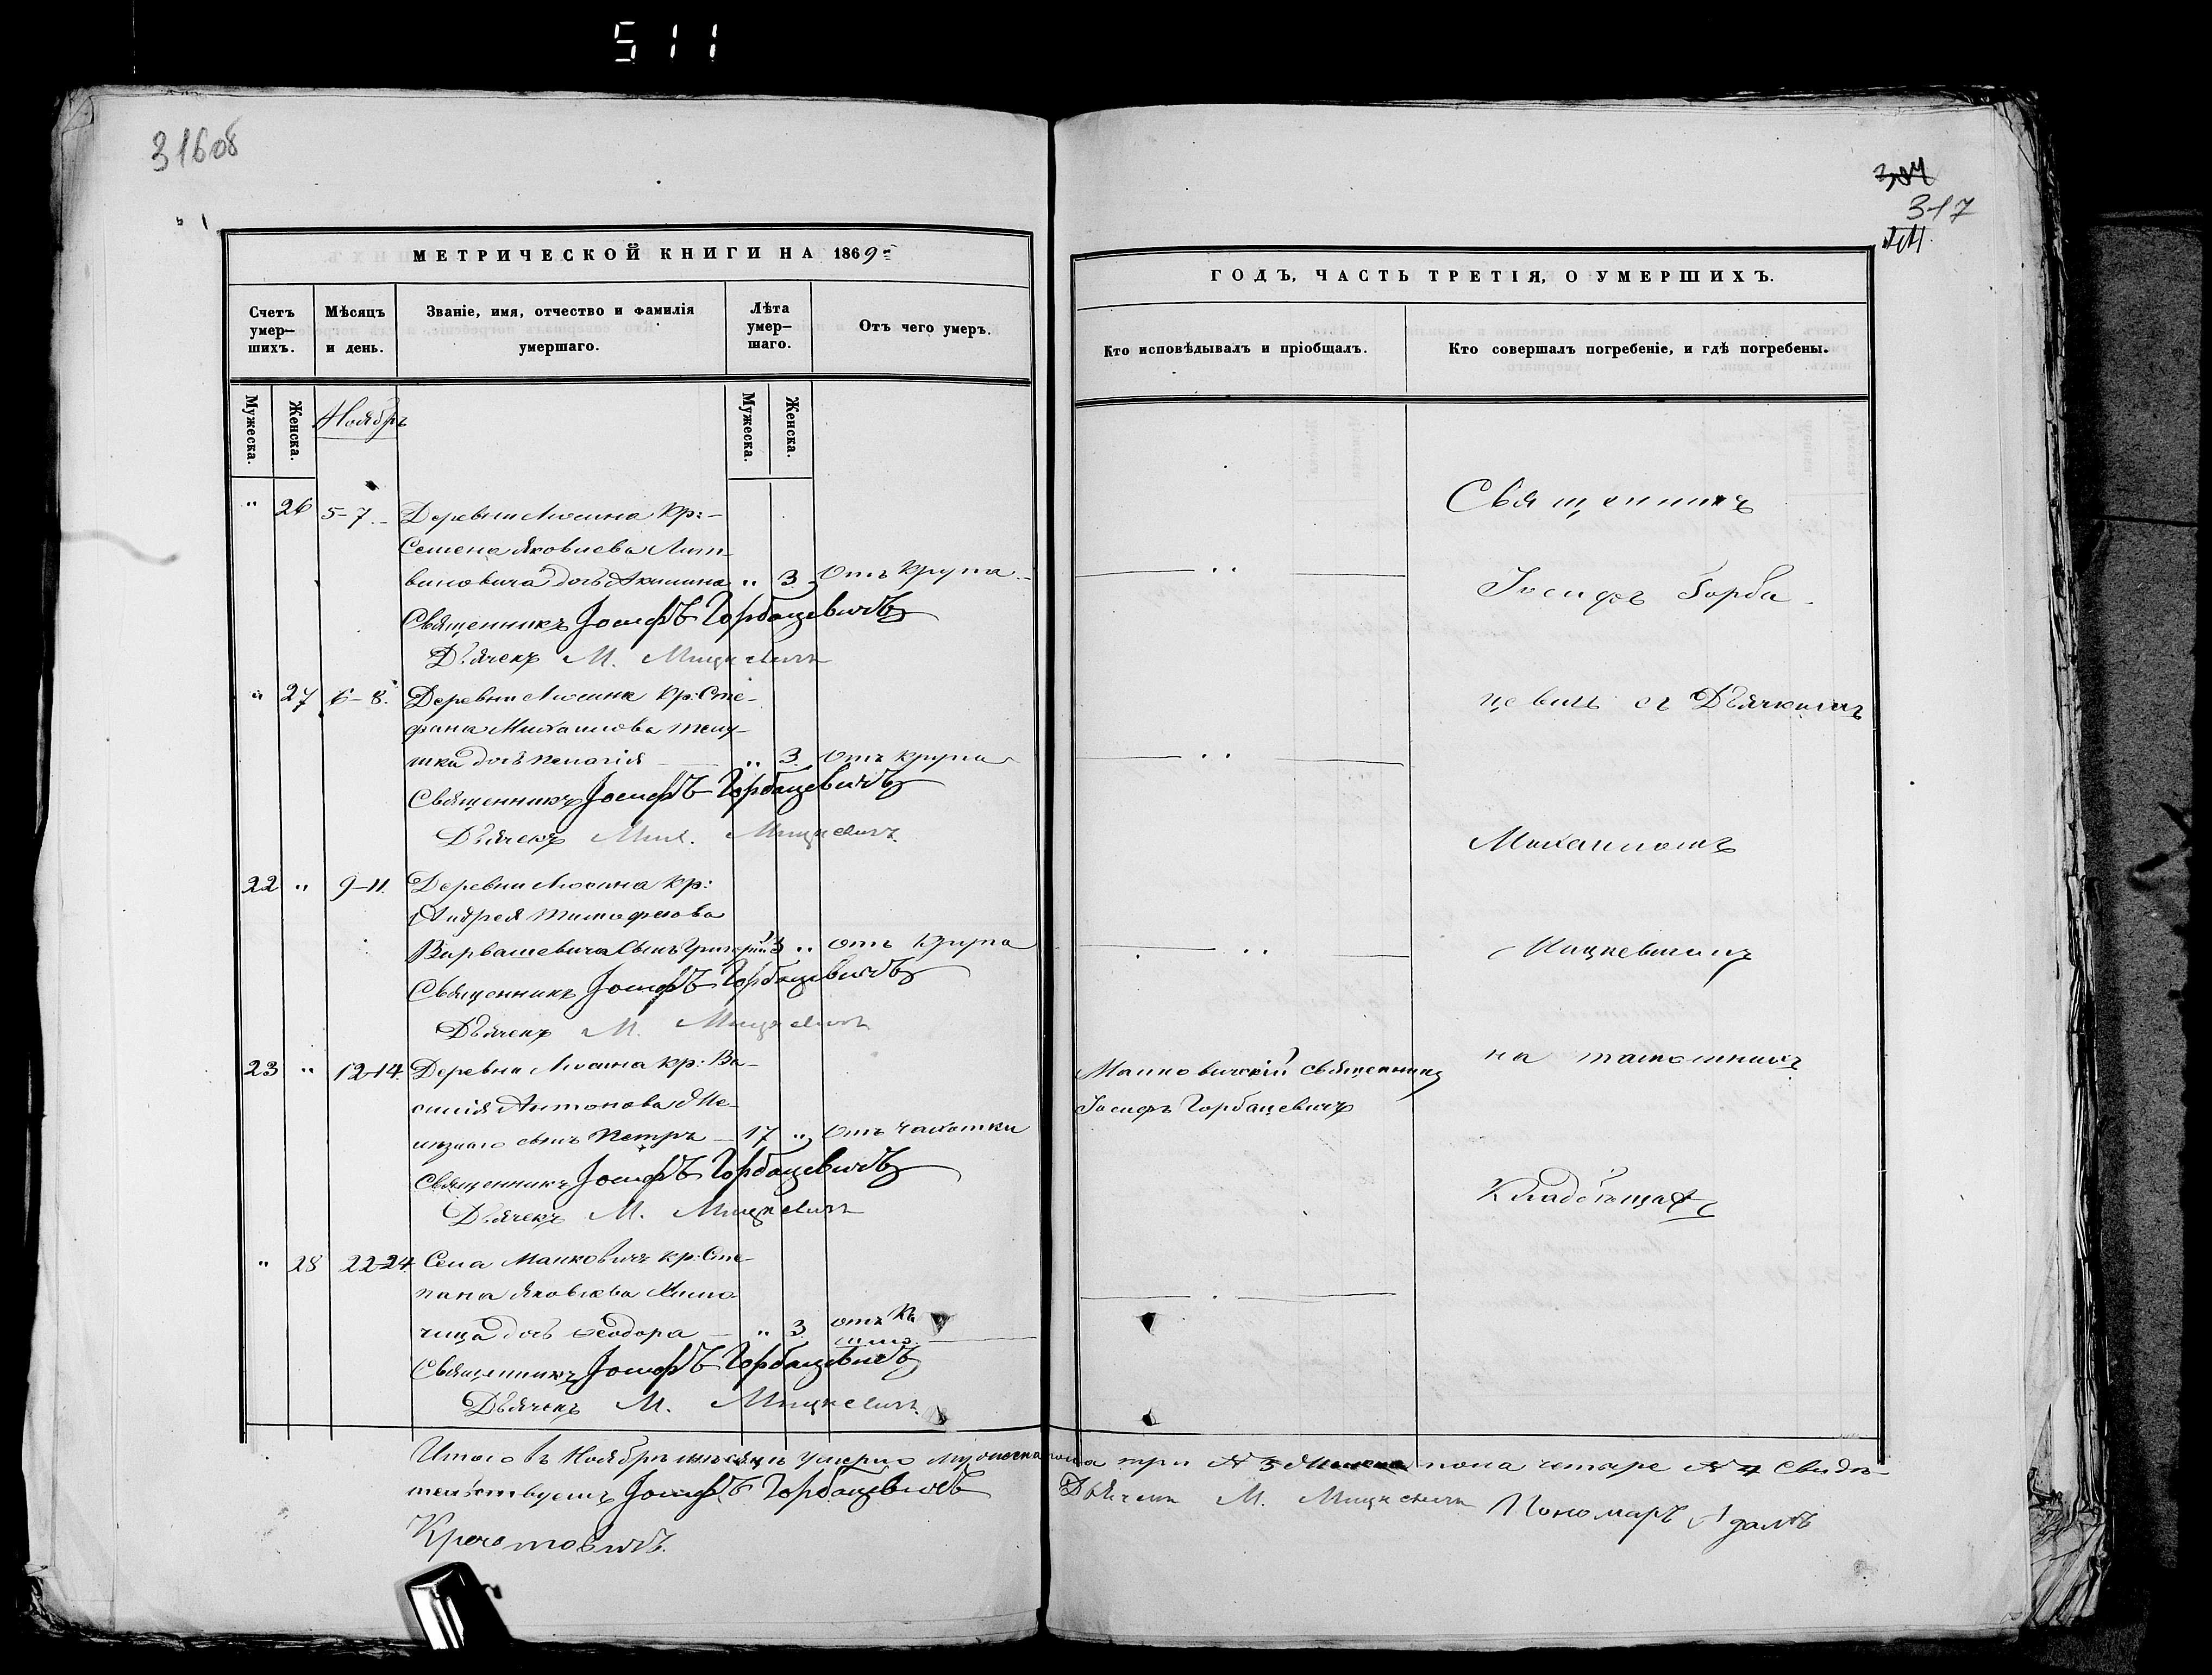 511
316об
304
317
МЕТРИЧЕСКОЙ КНИГИ НА 1869
ГОДЪ, ЧАСТЬ ТРЕТІЯ, О УМЕРШИХЪ.
Счетъ умер–шихъ.
Мѣсяцъ и день.
Званіе, имя, отчество и фамилія умершаго.
Лѣта умер–шаго.
Отъ чего умеръ.
Кто исповѣдывалъ и пріобщалъ.
Кто совершалъ погребеніе, и гдѣ погребены.
Мужеска.
Женска.
Ноябрь
Мужеска.
Женска.
" 26 5–7. Деревни Люсина кр:
Семена Яковлева Лит–
виновича дочь Акилина " 3 Отъ крупа
Священникъ Іосифъ Горбацевичъ
Дьячекъ М. Мицкевичъ
" 27 6–8. Деревни Люсина кр: Сте–
фана Михаилова
дочь Пелагія " 3 Отъ крупа
Священникъ Іосифъ Горбацевичъ
Дьячекъ Мих. Мицкевичъ
22 " 9–11. Деревни Люсина кр:
Андрея Тимофеева
Варвашевича сынъ Григорій 3 " отъ крупа
Священникъ Іосифъ Горбацевичъ
Дьячекъ М. Мицкевичъ
23 " 12–14. Деревни Люсина кр: Ва–
силія Антонова
сынъ Петръ 17 " Отъ чахотки
Священникъ Іосифъ Горбацевичъ
Дьячекъ М. Мицкевичъ
" 28 22–24. Села Малковичъ кр: Сте–
пана Яковлева
дочь Ѳеодора " 3 отъ
Священникъ Іосифъ Горбацевичъ
Дьячекъ М. Мицкевичъ
Малковичскій священникъ
Іосифъ Горбацевичъ
Священникъ
Іосифъ Горба–
цевичъ съ Дьячкомъ
Михаиломъ
Мицкевичемъ
на тамошнихъ
Кладбищахъ
Итого въ Ноябрѣ мѣсяцѣ умерло мужеска пола три № 3 женска пола четыре № 4 свидѣ–
тельствуемъ Іосифъ Горбацевичъ Дьячекъ М. Мицкевичъ Пономаръ Адамъ